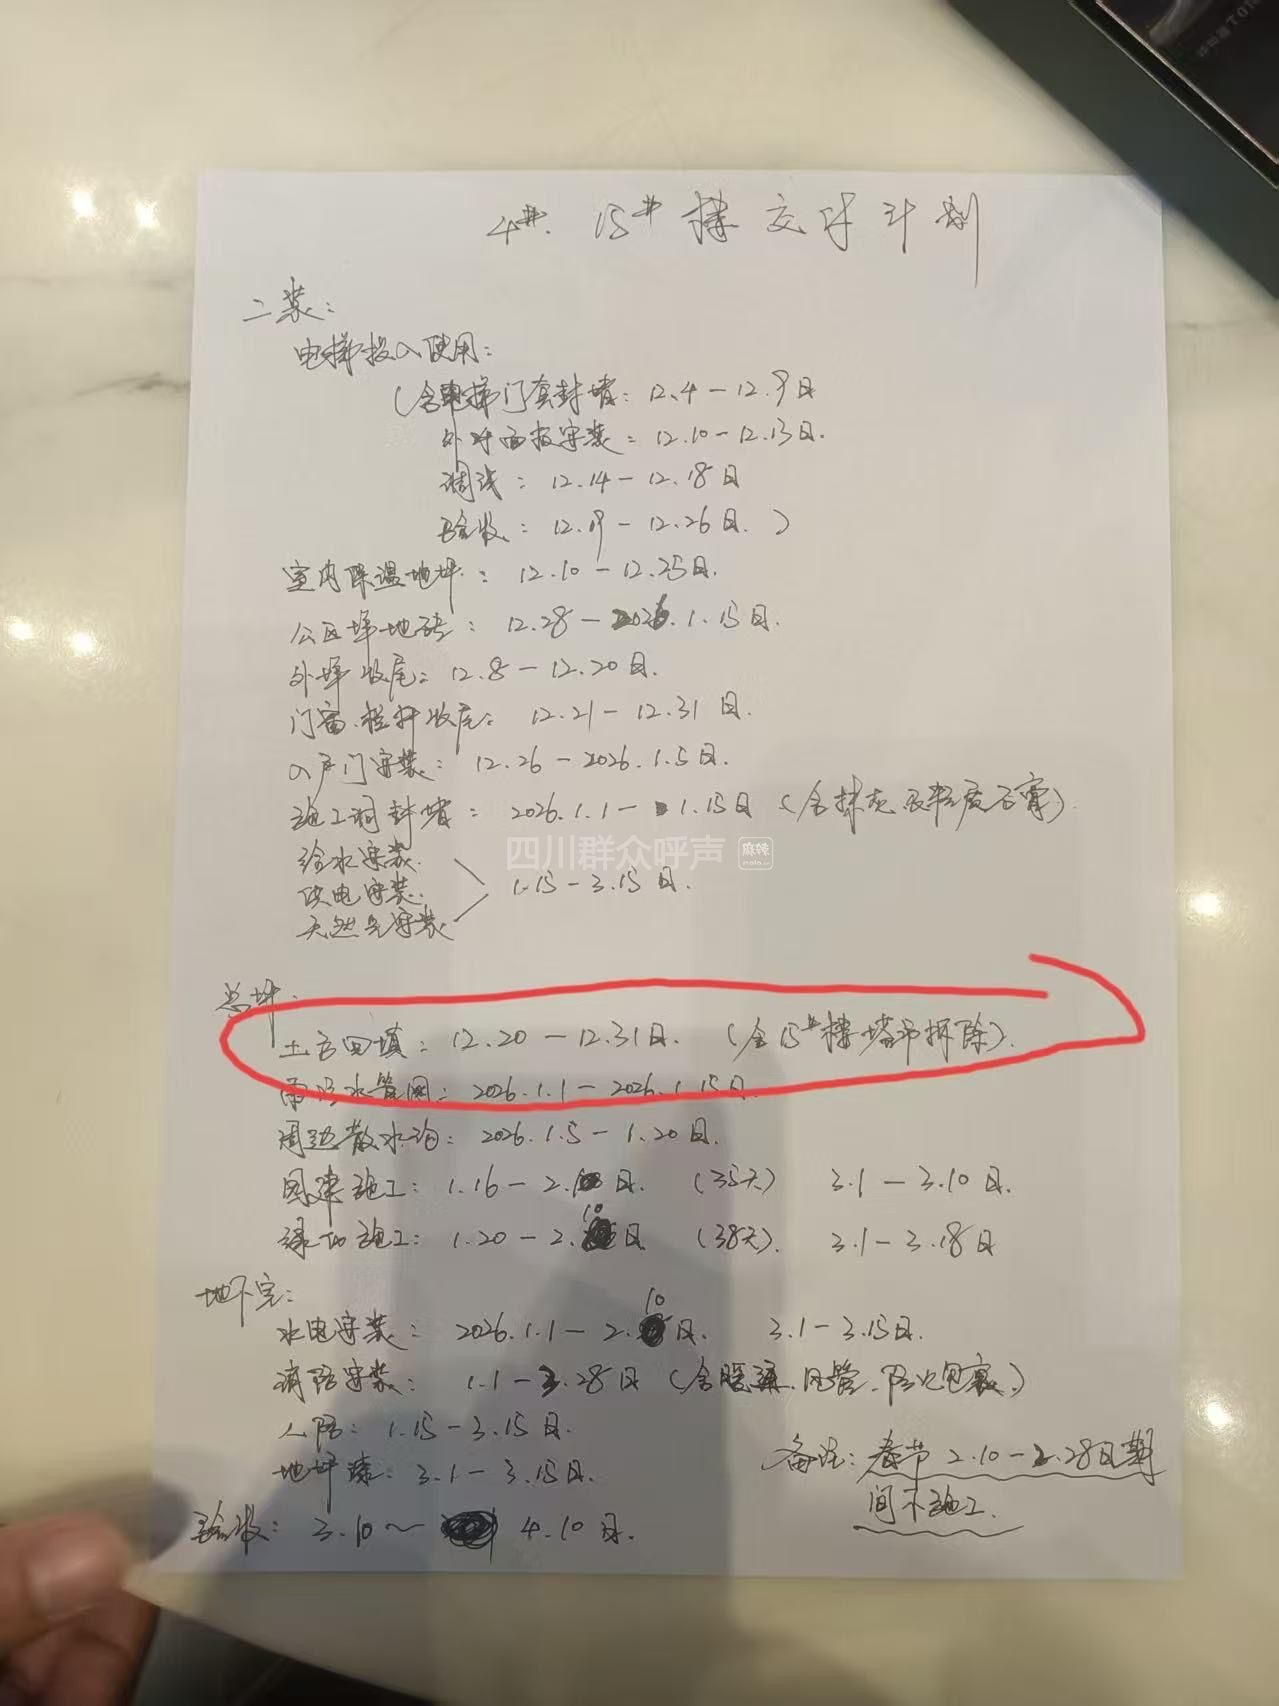 4#. 15#楼交付计划
二装:
电梯投入使用:
(含电梯门套封堵: 12.4-12.9日
外呼面板安装: 12.10-12.13日.
调试: 12.14-12.18日
验收: 12.19-12.26日.)
室内保温地坪: 12.10-12.25日.
公区墙地砖: 12.28-2026.1.15日.
外墙收尾: 12.8-12.20日.
门窗.栏杆收尾: 12.21-12.31日.
入户门安装: 12.26-2026.1.5日.
施工洞封堵: 2026.1.1-1.15日(含抹灰及轻质石膏).
给水安装.
供电安装. 1.15-3.15日.
天然气安装
四川群众呼声 麻辣
总坪:
土方回填: 12.20-12.31日. (含15#楼塔吊拆除).
雨污水管网: 2026.1.1-2026.1.15日.
周边散水沟: 2026.1.5-1.20日.
园建施工: 1.16-2.10日. (35天) 3.1-3.10日.
绿化施工: 1.20-2.10日 (38天). 3.1-3.18日
地下室:
水电安装: 2026.1.1-2.10日. 3.1-3.15日.
消防安装: 1.1-3.28日(含暖通.风管.防火包裹.)
人防: 1.15-3.15日.
地坪漆: 3.1-3.15日.
验收: 3.10~4.10日.
备注: 春节2.10-2.28日期
间不施工.